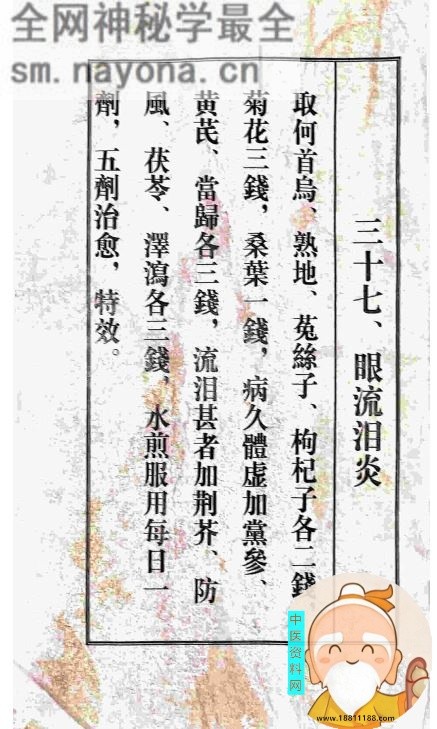 全网神秘学最全
sm.nayona.cn
三十七、眼流泪炎
取何首烏、熟地、菟絲子、枸杞子各二錢
菊花三錢，桑葉一錢，病久體虛加黨參、
黄芪、當歸各三錢，流泪甚者加荆芥、防
風、茯苓、澤瀉各三錢，水煎服用每日一
劑，五劑治愈，特效。
中医资料网
www.18811188.com